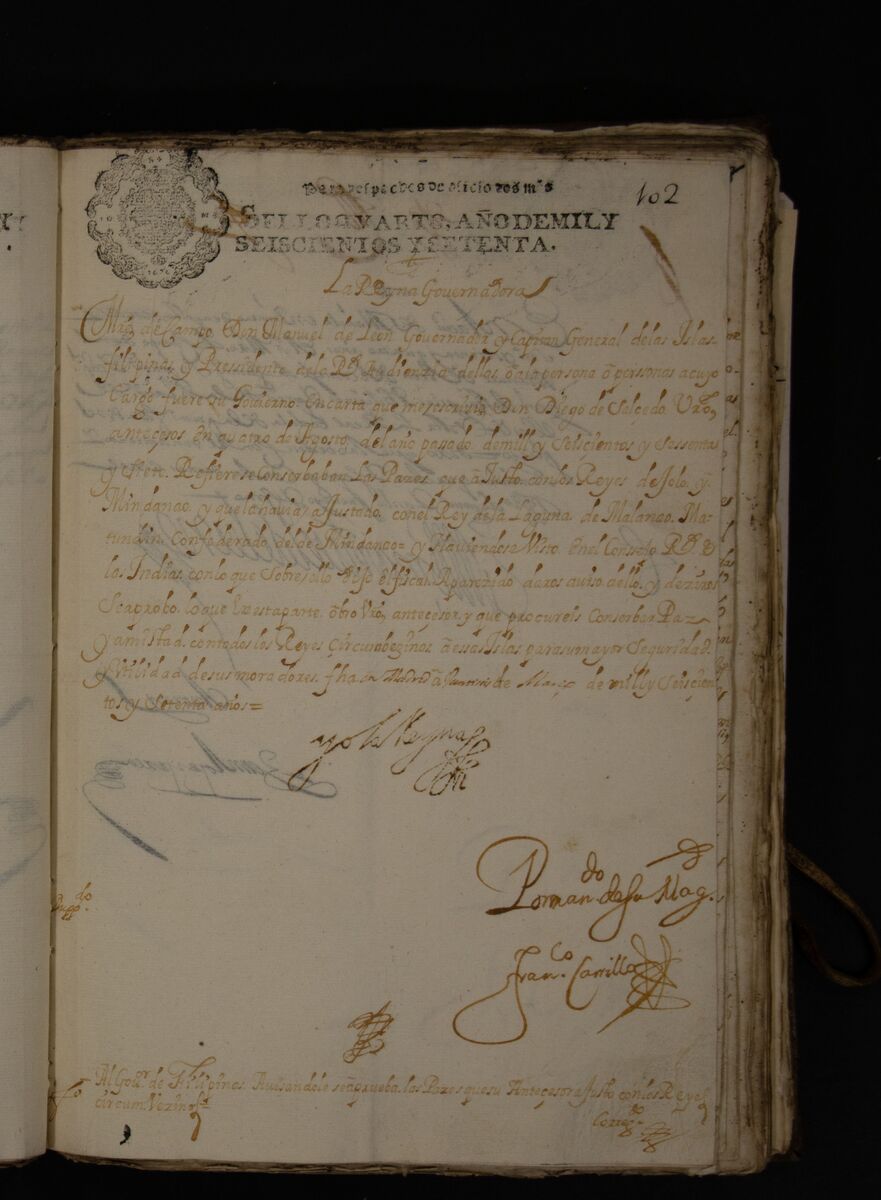 Para despachos de oficio dos mrs
102
SELLO QVARTO, AÑO DE MIL Y
SEISCIENTOS Y SETENTA.
La Reyna Governadora
Mro de Campo Don Manuel de Leon Governador y Capitan General de las Islas
filipinas y Presidente de la Rl Audienzia dellas o a la persona o personas a cuyo
Cargo fuere su Govierno. En carta que me escrivio Don Diego de Salçedo Vro
anteçesor en quatro de Agosto del año pasado de mill y Seiscientos y Sessenta
y siete. Refiere se Conserbaban Las Pazes que ajusto con los Reyes de Jolo y
Mindanao y que la havia ajustado con el Rey de la Laguna de Malanao Ma-
tundin Confederado del de Mindanao = y Haviendose Visto en el Consejo Rl de
las Indias con lo que Sobre ello dijo el fiscal. A parezido daros aviso dello y deziros
Se aprobo lo que en esta parte obro Vro anteçesor y que procureis Conserbar Paz
y amistad con todos los Reyes Çircumbezinos a essas Islas para su mayor Seguridad
y Vtilidad de sus moradores. fha en Madrid a de Março de mill y Seiscien
tos y Setenta años =
yo la Reyna
Por mando de su Magd
Franco Carrillo
Dupdo
Al Govr de Filipinas Avisandole se aprueba las Pazes que su Anteçesor ajusto con los Reyes
circumVezinos
Corregdo